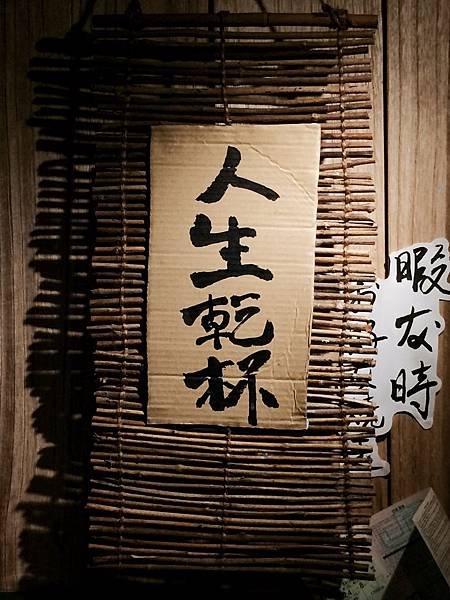 人生乾杯
暇友時